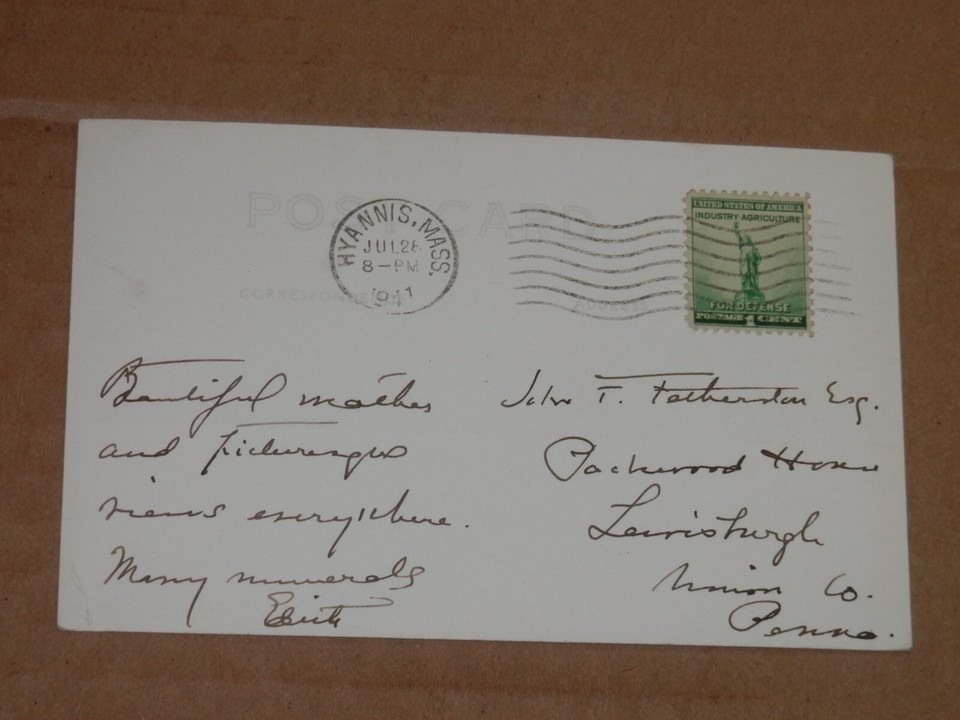 POST CARD
HYANNIS, MASS.
JUL 28
8-PM
1941
UNITED STATES OF AMERICA
INDUSTRY·AGRICULTURE
FOR DEFENSE
POSTAGE 1 CENT
CORRESPONDENCE
ADDRESS
Beautiful weather
and picturesque
views everywhere.
Many minerals
Edith
John T. Fetherston Esq.
Packwood House
Lewisburgh
Union Co.
Penna.